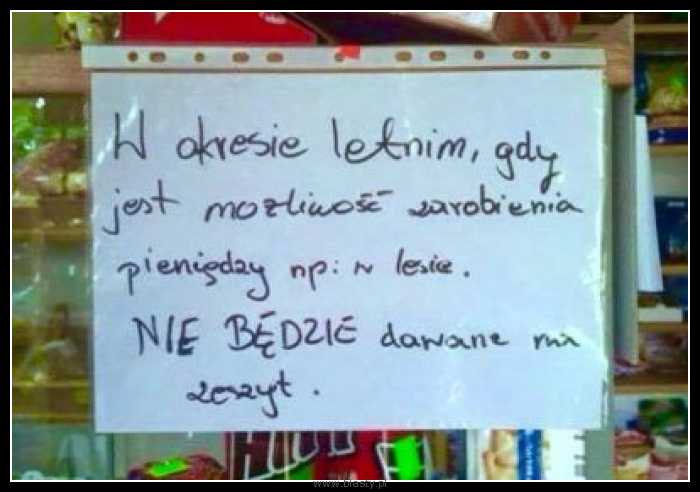 W okresie letnim, gdy
jest możliwość zarobienia
pieniędzy np: w lesie.
NIE BĘDZIE dawane na
zeszyt.
www.blasty.pl